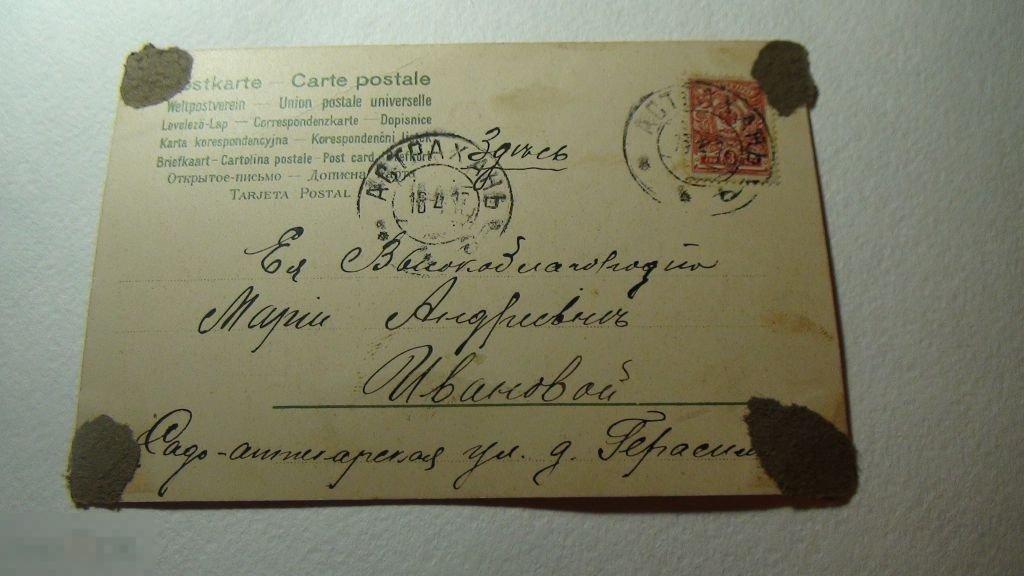 Postkarte — Carte postale
Weltpostverein — Union postale universelle
Levelező-Lap — Correspondenzkarte — Dopisnice
Karta korespondencyjna — Korespondenční lístek
Briefkaart - Cartolina postale - Post card
Открытое-письмо — Дописна
TARJETA POSTAL
Здѣсь
АСТРАХАНЬ
16-4-15
АСТРАХАНЬ
Ея Высокоблагородию
Маріи Андреевнѣ
Ивановой
Садо- ул. д. Герасим